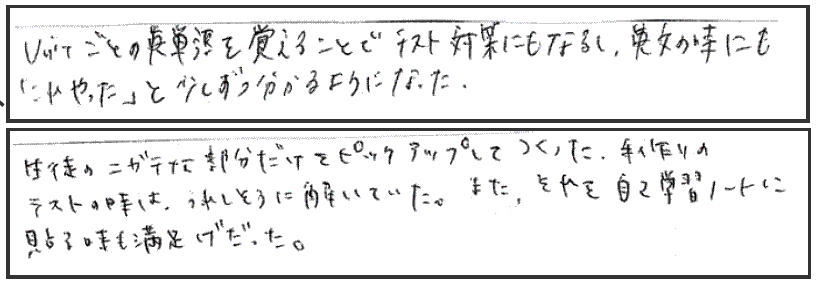 Unitごとの英単語を覚えることでテスト対策にもなるし、英文の時にも
「これやった」と少しずつ分かるようになった。
生徒のニガテな部分だけをピックアップしてつくった、手作りの
テストの時は、うれしそうに解いていた。また、それを自己学習ノートに
貼る時も満足げだった。